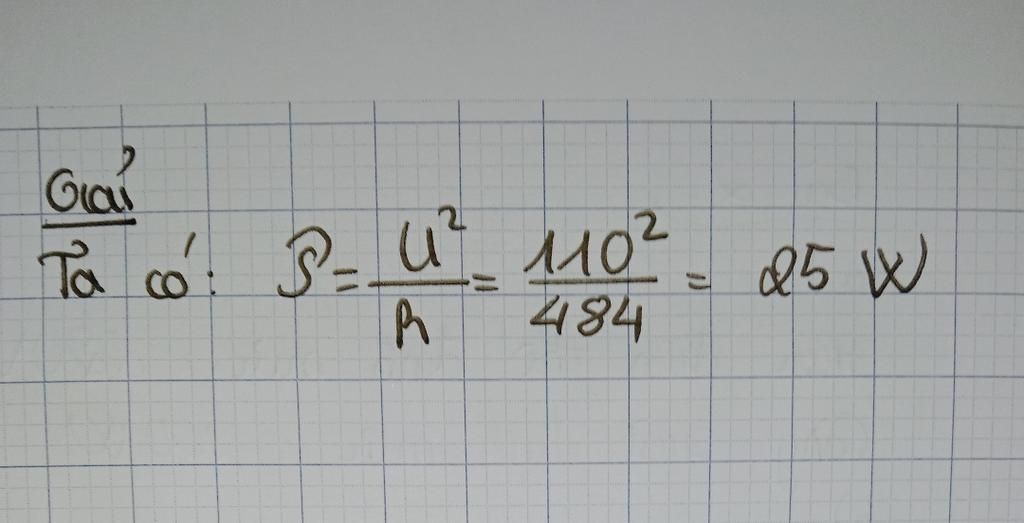 Giải
Ta có: P = U²/R = 110²/484 = 25 W